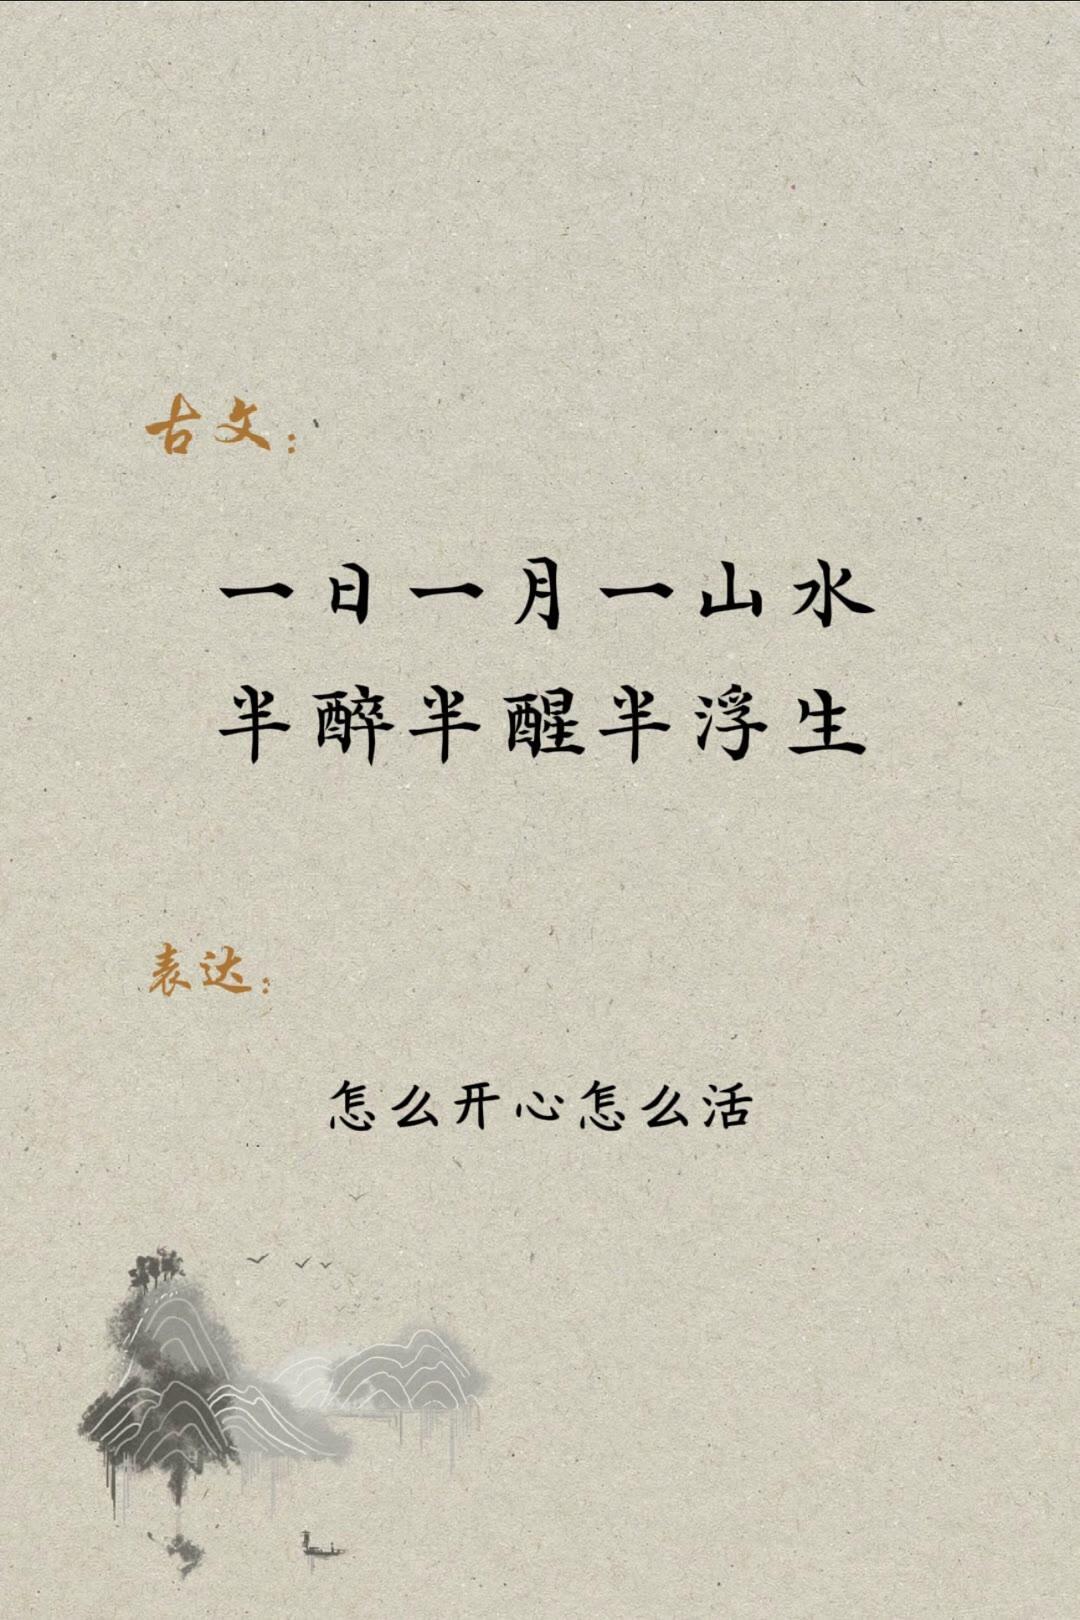 古文：
一日一月一山水
半醉半醒半浮生
表达：
怎么开心怎么活